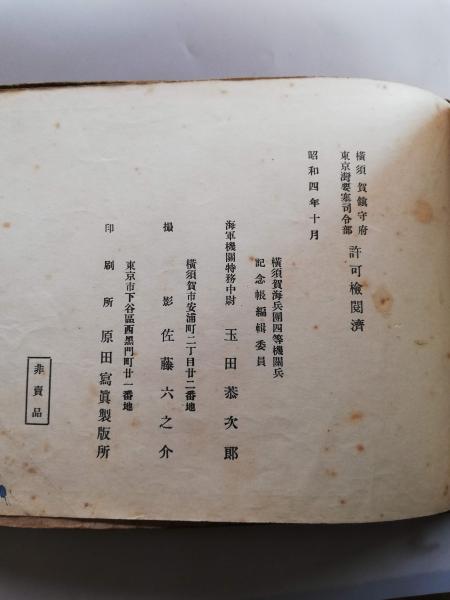 横須賀鎮守府
東京灣要塞司令部
許可檢閲濟
昭和四年十月
横須賀海兵團四等機關兵
記念帳編輯委員
海軍機關特務中尉 玉田恭次郎
横須賀市安浦町二丁目廿二番地
撮影 佐藤六之介
東京市下谷區西黑門町廿一番地
印刷所 原田寫眞製版所
非賣品